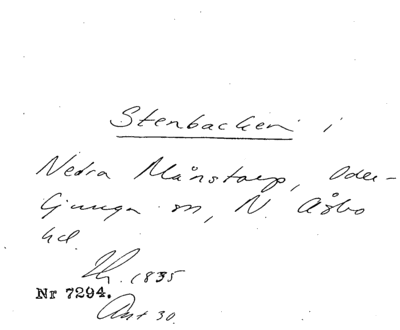 Stenbacken i
Nedra Månstorp, Oder-
ljunga sn, N. Åsbo
hd.
Th. 1835
Nr 7294.
Ant 30.